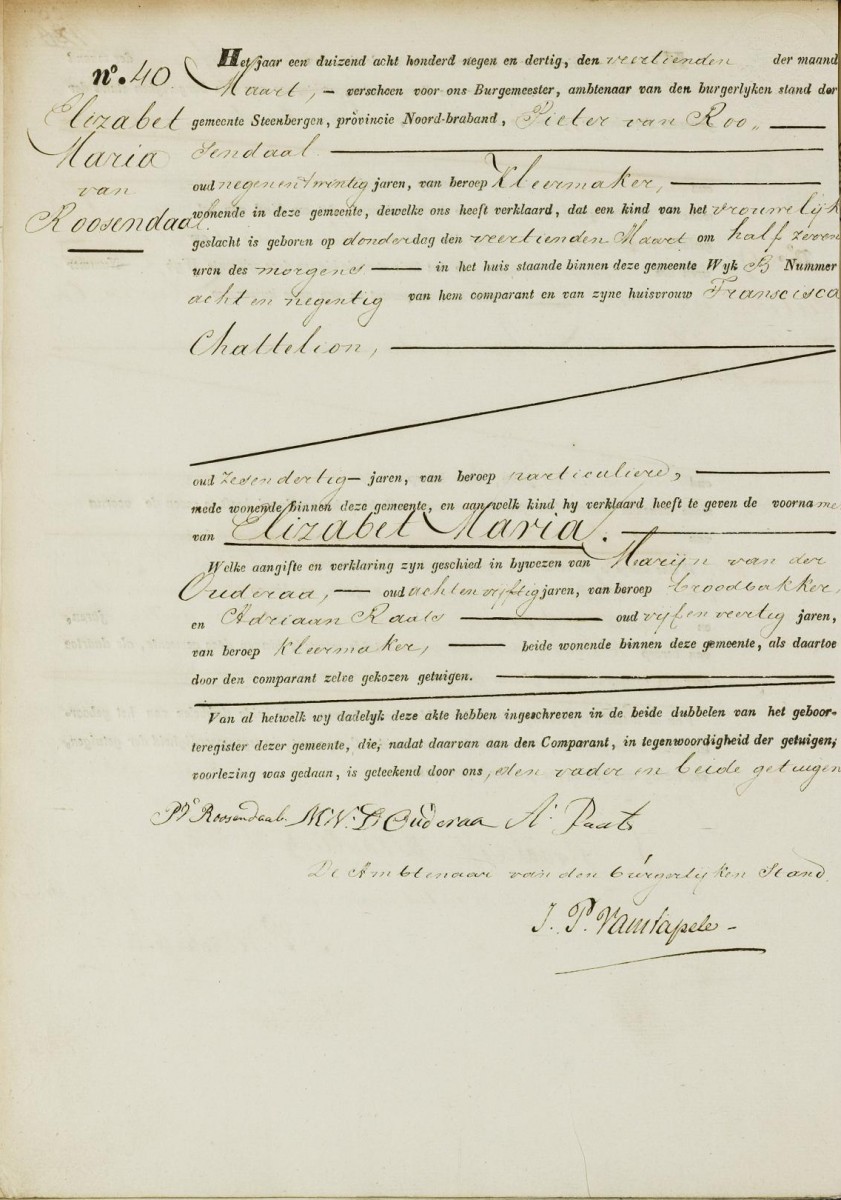 nº. 40
Elizabet
Maria
van
Roosendaal
Het jaar een duizend acht honderd negen en dertig, den veertienden der maand
Maart, — verscheen voor ons Burgemeester, ambtenaar van den burgerlyken stand der
gemeente Steenbergen, provincie Noord-braband, Pieter van Roo„
sendaal
oud negenentwintig jaren, van beroep Kleermaker,
wonende in deze gemeente, dewelke ons heeft verklaard, dat een kind van het vrouwelijk
geslacht is geboren op donderdag den veertienden Maart om half zeven
uren des morgens — in het huis staande binnen deze gemeente Wyk B Nummer
acht en negentig van hem comparant en van zyne huisvrouw Franscisca
Chattelion,
oud zesendertig — jaren, van beroep particuliere,
mede wonende binnen deze gemeente, en aan welk kind hy verklaard heeft te geven de voorname
van Elizabet Maria.
Welke aangifte en verklaring zyn geschied in bywezen van Marijn van der
Ouderaa, — oud achtenvyftig jaren, van beroep broodbakker,
en Adriaan Raats — oud vyfenveertig jaren,
van beroep kleermaker, — beide wonende binnen deze gemeente, als daartoe
door den comparant zelve gekozen getuigen.
Van al hetwelk wy dadelyk deze akte hebben ingeschreven in de beide dubbelen van het geboor-
teregister dezer gemeente, die, nadat daarvan aan den Comparant, in tegenwoordigheid der getuigen,
voorlezing was gedaan, is geteekend door ons, den vader en beide getuigen
Roosendaal. Ouderaa A. Raats
De Ambtenaar van den burgerlyken Stand
J. P.